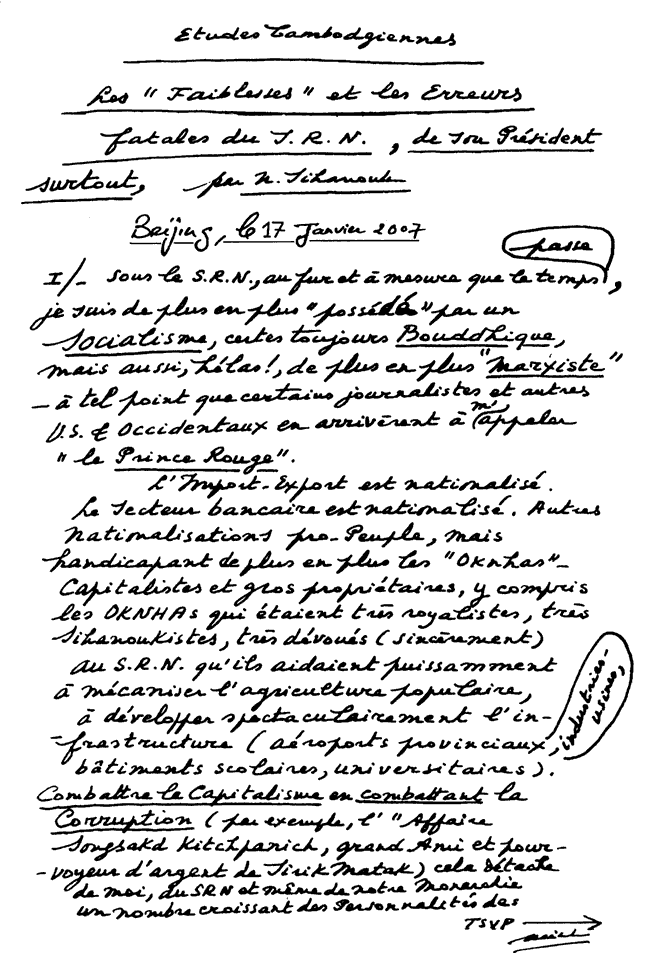 Etudes Cambodgiennes
Les "Faiblesses" et les Erreurs
fatales du S.R.N., de son Président
surtout, par N. Sihanouk
Beijing, le 17 Janvier 2007
passe
I/- Sous le S.R.N., au fur et à mesure que le temps,
je suis de plus en plus "possédé" par un
Socialisme, certes toujours Bouddhique,
mais aussi, hélas!, de plus en plus "Marxiste"
- à tel point que certains journalistes et autres
U.S. & Occidentaux en arrivèrent à m'appeler
"le Prince Rouge".
L'Import-Export est nationalisé.
Le Secteur bancaire est nationalisé. Autres
Nationalisations pro-Peuple, mais
handicapant de plus en plus les "Oknhas"-
Capitalistes et gros propriétaires, y compris
les OKNHAs qui étaient très royalistes, très
Sihanoukistes, très dévoués (sincèrement)
au S.R.N. qu'ils aidaient puissamment
à mécaniser l'agriculture populaire,
à développer spectaculairement l'in-
-frastructure (aéroports provinciaux,
industries-
usines,
bâtiments scolaires, universitaires).
Combattre le Capitalisme en combattant la
Corruption (par exemple, l'"Affaire
Songsakd Kitchpanich, grand Ami et pour-
-voyeur d'argent de Sirik Matak) cela détache
de moi, du SRN et même de notre Monarchie
un nombre croissant des Personnalités des
TSVP →